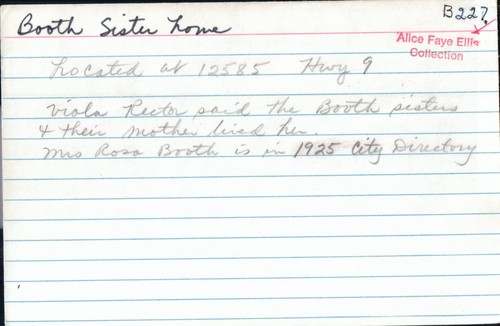 Booth Sister home
B227
Alice Faye Ellis
Collection
Located at 12585 Hwy 9
Viola Rector said the Booth sisters
& their mother lived her.
Mrs Rosa Booth is in 1925 City Directory